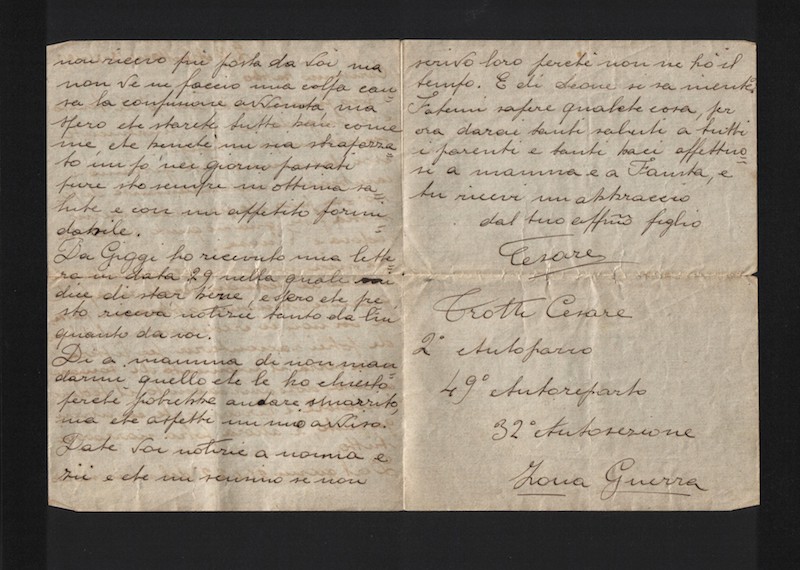 non ricevo più posta da voi, ma
non ve ne faccio una colpa cau=
sa la confusione avvenuta ma
spero che starete tutti bene come
me, che benchè mi sia strapazza=
to un pò nei giorni passati
pure sto sempre in ottima sa=
lute e con un appetito formi=
dabile.
Da Giggi ho ricevuto una lette=
ra in data 29 nella quale
dice di star bene, e spero che pre=
sto riceva notizie tanto da lui
quanto da voi.
Di a mamma di non man=
darmi quello che le ho chiesto
perchè potrebbe andare smarrito,
ma che aspetti un mio avviso.
Date voi notizie a nonna e
zii e che mi scusino se non
scrivo loro perchè non ne hò il
tempo. E di Leone si sa niente?
Fatemi sapere qualche cosa, per
ora darai tanti saluti a tutti
i parenti e tanti baci affettuo=
si a mamma e a Fausta, e
tu ricevi un abbraccio
dal tuo affmo figlio
Cesare
Trotti Cesare
2° Autoparco
49° Autoreparto
32° Autosezione
Zona Guerra